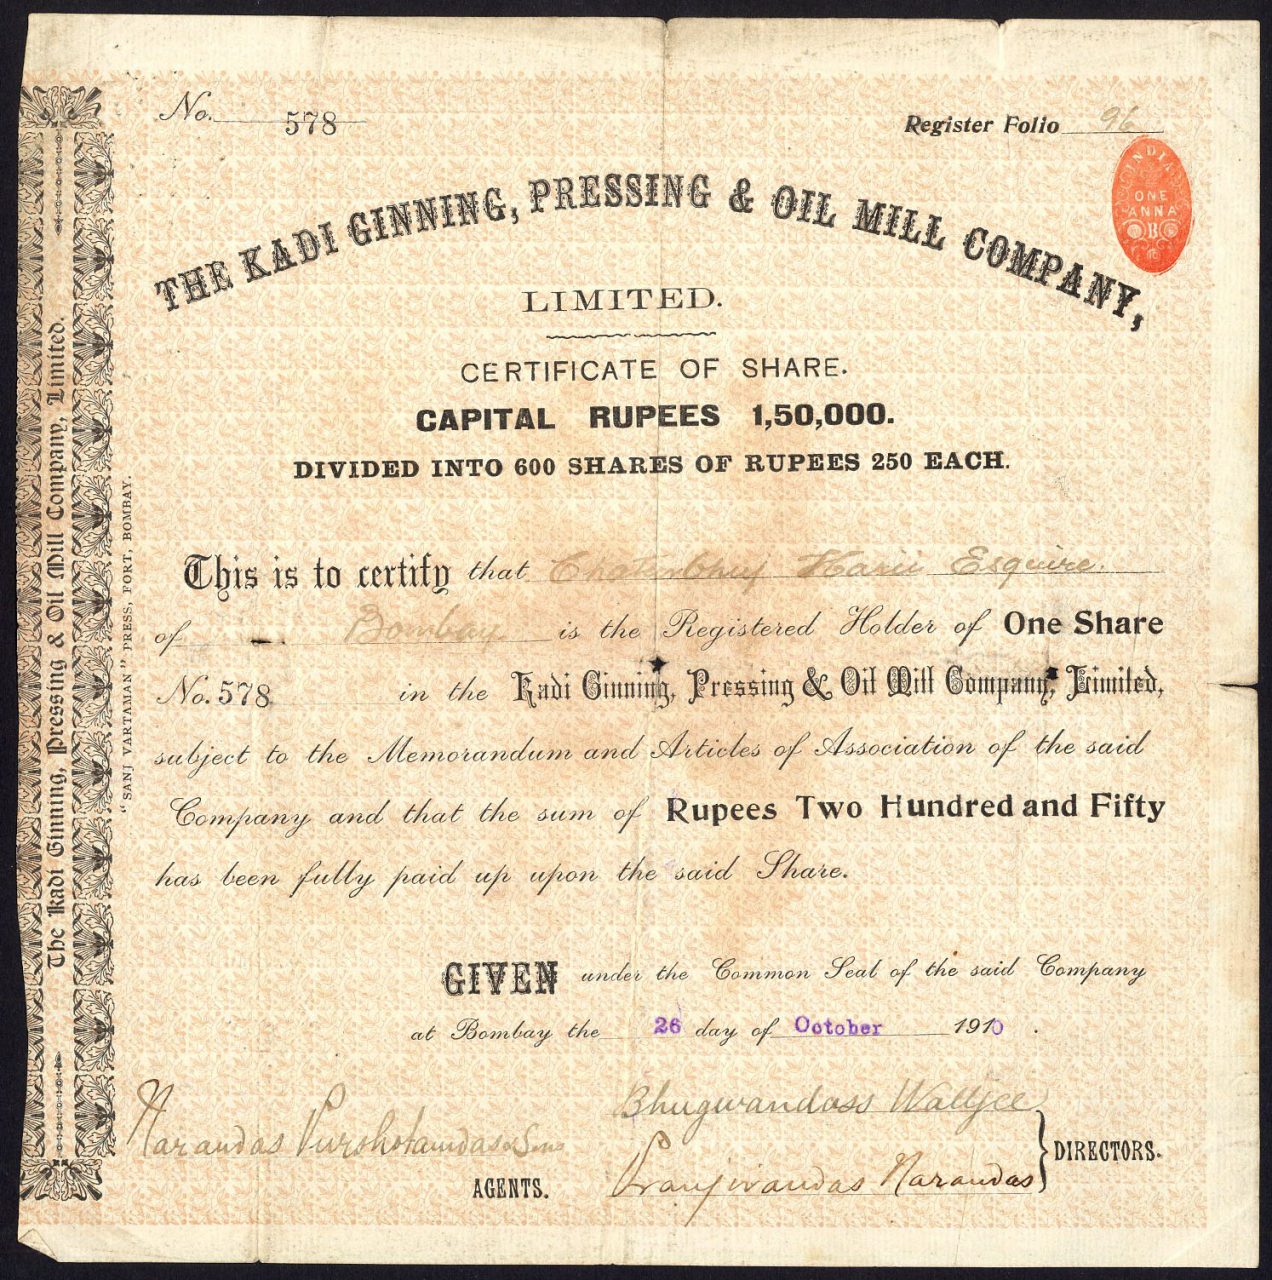 No. 578
Register Folio 96
INDIA
ONE
ANNA
B
THE KADI GINNING, PRESSING & OIL MILL COMPANY,
LIMITED.
CERTIFICATE OF SHARE.
CAPITAL RUPEES 1,50,000.
DIVIDED INTO 600 SHARES OF RUPEES 250 EACH.
This is to certify that Chaturbhuj Harii Esquire.
of Bombay is the Registered Holder of One Share
No. 578 in the Kadi Ginning, Pressing & Oil Mill Company, Limited,
subject to the Memorandum and Articles of Association of the said
Company and that the sum of Rupees Two Hundred and Fifty
has been fully paid up upon the said Share.
GIVEN under the Common Seal of the said Company
at Bombay the 26 day of October 1910.
Narandas Purshotamdas & Sons
AGENTS.
Bhugwandass Walljee
Pranjivandas Narandas
DIRECTORS.
The Kadi Ginning, Pressing & Oil Mill Company, Limited.
"SANJ VARTAMAN" PRESS, FORT, BOMBAY.